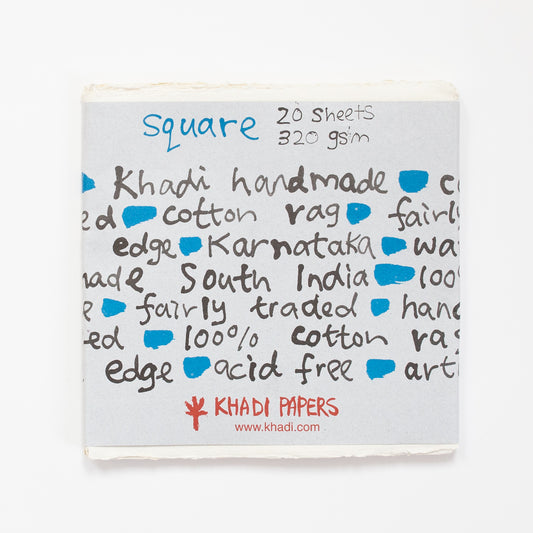 square 20 sheets
320 gsm
Khadi handmade c
ed cotton rag fairly
edge Karnataka wa
made South India 100
e fairly traded hand
ed 100% cotton rag
edge acid free art
KHADI PAPERS
www.khadi.com